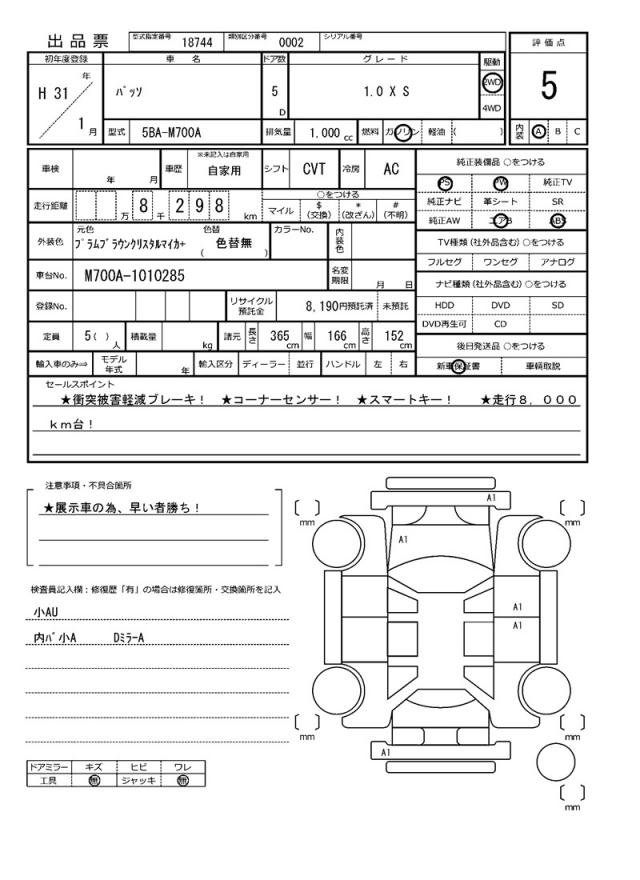 出品票 型式指定番号 18744 類別区分番号 0002 シリアル番号
評価点
初年度登録 車名 ドア数 グレード 駆動
H 31 年 ﾊﾟｯｿ 5 D 1.0 X S 2WD 5
4WD
1 月 型式 5BA-M700A 排気量 1.000 cc 燃料 ガソリン 軽油 ( ) 内装 A B C
車検 年 月 車歴 ※未記入は自家用 自家用 シフト CVT 冷房 AC 純正装備品 ○をつける
PS PW 純正TV
走行距離 万 8 千 2 9 8 km ○をつける 純正ナビ 革シート SR
マイル $(交換) *(改ざん) #(不明) 純正AW エアB ABS
外装色 元色 ﾌﾟﾗﾑﾌﾞﾗｳﾝｸﾘｽﾀﾙﾏｲｶ+ 色替 ( 色替無 ) カラーNo. 内装色 TV種類 (社外品含む) ○をつける
フルセグ ワンセグ アナログ
車台No. M700A-1010285 名変期限 月 日 ナビ種類 (社外品含む) ○をつける
登録No. リサイクル預託金 8,190円預託済 未預託 HDD DVD SD
DVD再生可 CD
定員 5 ( ) 人 積載量 kg 諸元 長さ 365 cm 幅 166 cm 高さ 152 cm 後日発送品 ○をつける
輸入車のみ⇒ モデル年式 年 輸入区分 ディーラー 並行 ハンドル 左 右 新車保証書 車輌取説
セールスポイント
★衝突被害軽減ブレーキ！ ★コーナーセンサー！ ★スマートキー！ ★走行８，０００
ｋｍ台！
注意事項・不具合箇所
★展示車の為、早い者勝ち！
検査員記入欄：修復歴「有」の場合は修復箇所・交換箇所を記入
小AU
内ﾊﾞ小A DﾐﾗｰA
ドアミラー キズ ヒビ ワレ
工具 無 ジャッキ 無
A1
[ ] mm [ ] mm
A1
A1
A1
[ ] mm [ ] mm
A1
[ ] mm